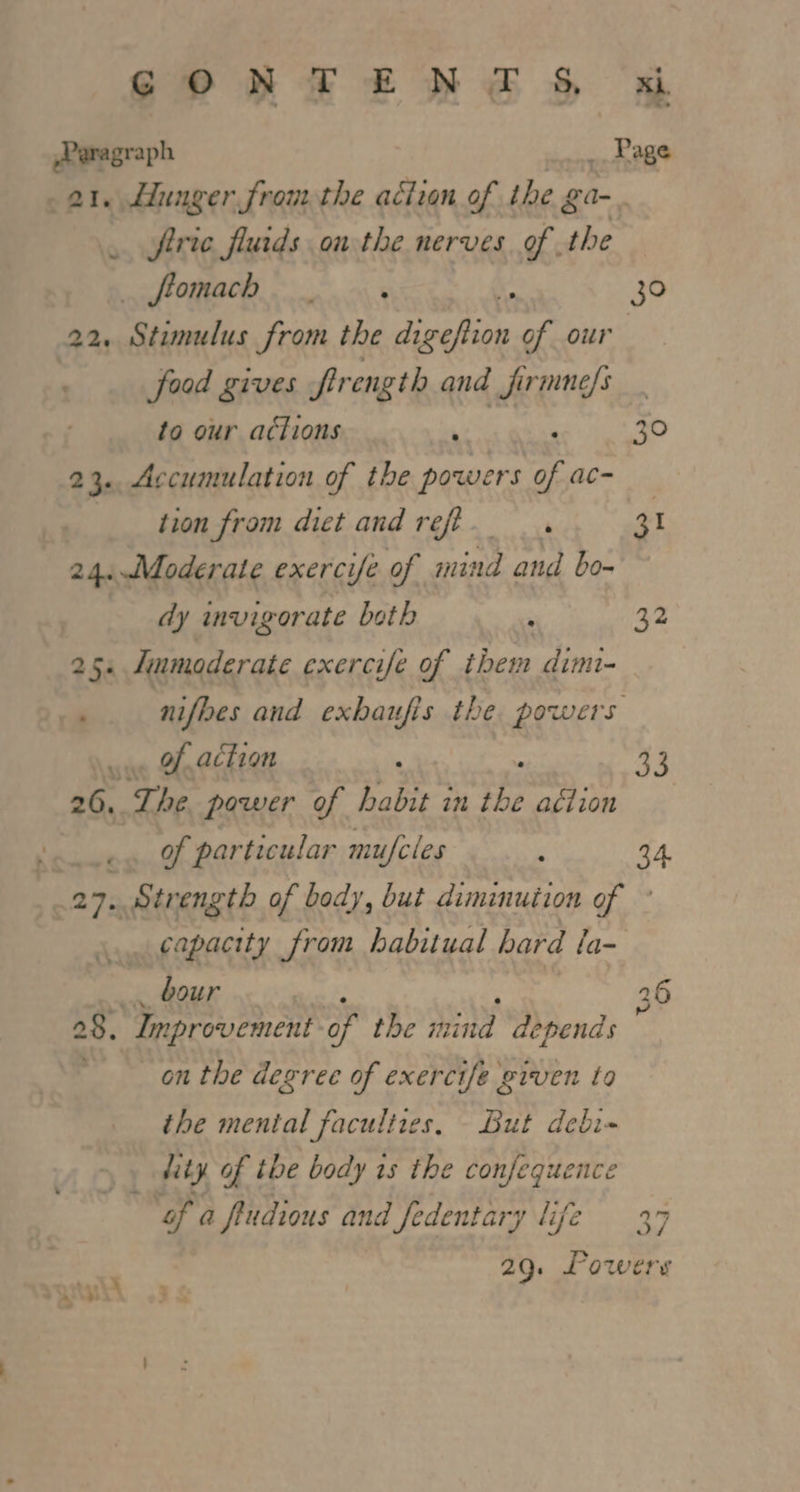 CONTENTS. xi.
Paragraph Page
21. Hunger from the action of the ga-
ſtric fluids on the nerves of the
ſtomach . . 30
22. Stimulus from the digeſtion of our
food gives ſtrength and firmneſs
to our actions . . 30
23. Accumulation of the powers of ac-
tion from diet and reſt . 31
24. Moderate exerciſe of mind and bo-
dy invigorate both . 32
25. Immoderate exerciſe of them dimi-
niſhes and exhauſts the powers
of action . . 33
26. The power of habit in the action
of particular muſcles . 34
27. Strength of body, but diminution of
capacity from habitual hard la-
bour . . 36
28. Improvement of the mind depends
on the degree of exerciſe given to
the mental faculties. But debi-
lity of the body is the conſequence
of a ſtudious and ſedentary life 37
29. Powers